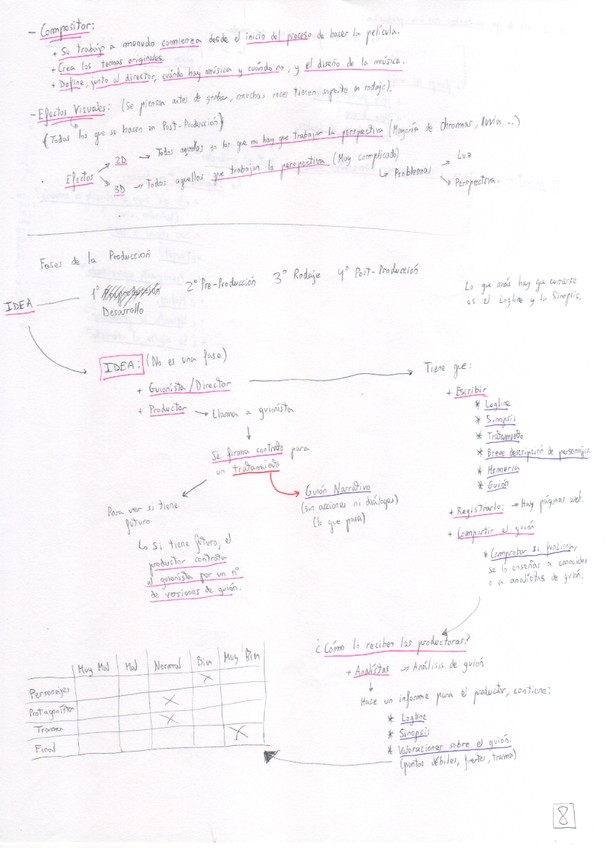 - Compositor:
+ Su trabajo a menudo comienza desde el inicio del proceso de hacer la película.
+ Crea los temas originales.
+ Define, junto al director, cuándo hay música y cuándo no, y el diseño de la música.
- Efectos Visuales: (Se piensan antes de grabar, muchas veces tienen soporte en rodaje).
(Todos los que se hacen en Post-Producción)
Efectos
2D → Todos aquellos en los que no hay que trabajar la perspectiva (Mayoría de chromas, lluvia...)
3D → Todos aquellos que trabajan la perspectiva (Muy complicado)
↳ Problemas
Luz
Perspectiva.
Fases de la Producción
IDEA
1º
Desarrollo
2º Pre-Producción
3º Rodaje
4º Post-Producción
Lo que más hay que currarse
es el Logline y la Sinopsis.
IDEA: (No es una fase)
+ Guionista / Director
+ Productor → Llama a guionista
Se firma contrato para
un tratamiento
Para ver si tiene
futuro
↳ Si tiene futuro, el
productor contrata
al guionista por un nº
de versiones de guión.
Guión Narrativo
(sin acciones ni diálogos)
(lo que pasa)
Tiene que:
+ Escribir
* Logline
* Sinopsis
* Tratamiento
* Breve descripción de personajes
* Memoria
* Guión
+ Registrarlo: → Hay páginas web.
+ Compartir el guión
* Comprobar si funciona,
se lo enseñas a conocidos
o a analistas de guión.
¿Cómo lo reciben las productoras?
+ Analistas → Análisis de guión
Hace un informe para el productor, contiene:
* Logline
* Sinopsis
* Valoraciones sobre el guión.
(puntos débiles, fuertes, trama)
Muy Mal Mal Normal Bien Muy Bien
Personajes X
Protagonista X
Trama X
Final X
8